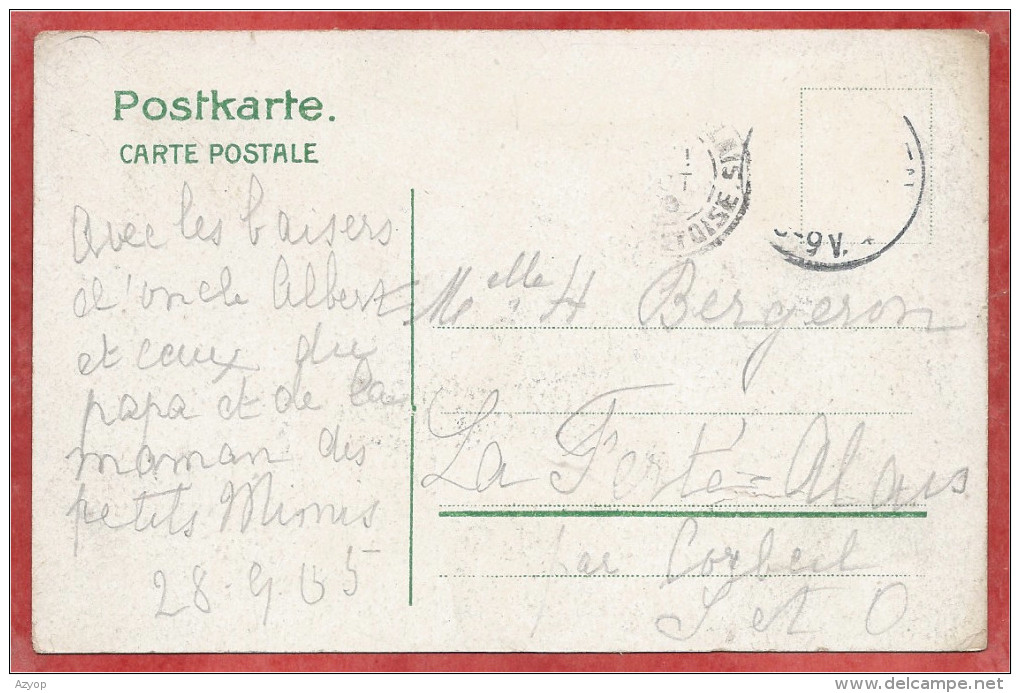 Postkarte.
CARTE POSTALE
Avec les baisers
d'oncle Albert
et ceux du
papa et de la
maman des
petits Mionis
28.9.05
Melle H Bergeron
La Ferté-Alais
par Corbeil
S et O
OISE
Azyop
delcampe.net